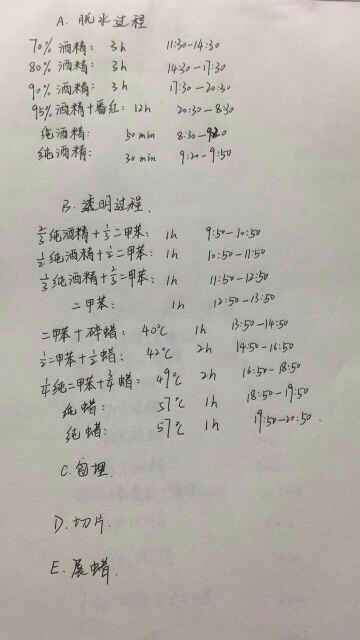 A. 脱水过程
70% 酒精: 3h 11:30-14:30
80% 酒精: 3h 14:30-17:30
90% 酒精: 3h 17:30-20:30
95% 酒精+番红: 12h 20:30-8:30
纯酒精: 50 min 8:30-9:20
纯酒精: 30 min 9:20-9:50
B. 透明过程.
⅔纯酒精+⅓二甲苯: 1h 9:50-10:50
½纯酒精+½二甲苯: 1h 10:50-11:50
⅓纯酒精+⅔二甲苯: 1h 11:50-12:50
二甲苯: 1h 12:50-13:50
二甲苯+碎蜡: 40℃ 1h 13:50-14:50
½二甲苯+½蜡: 42℃ 2h 14:50-16:50
¼纯二甲苯+¾蜡: 49℃ 2h 16:50-18:50
纯蜡: 57℃ 1h 18:50-19:50
纯蜡: 57℃ 1h 19:50-20:50.
C. 包埋.
D. 切片.
E. 展蜡.